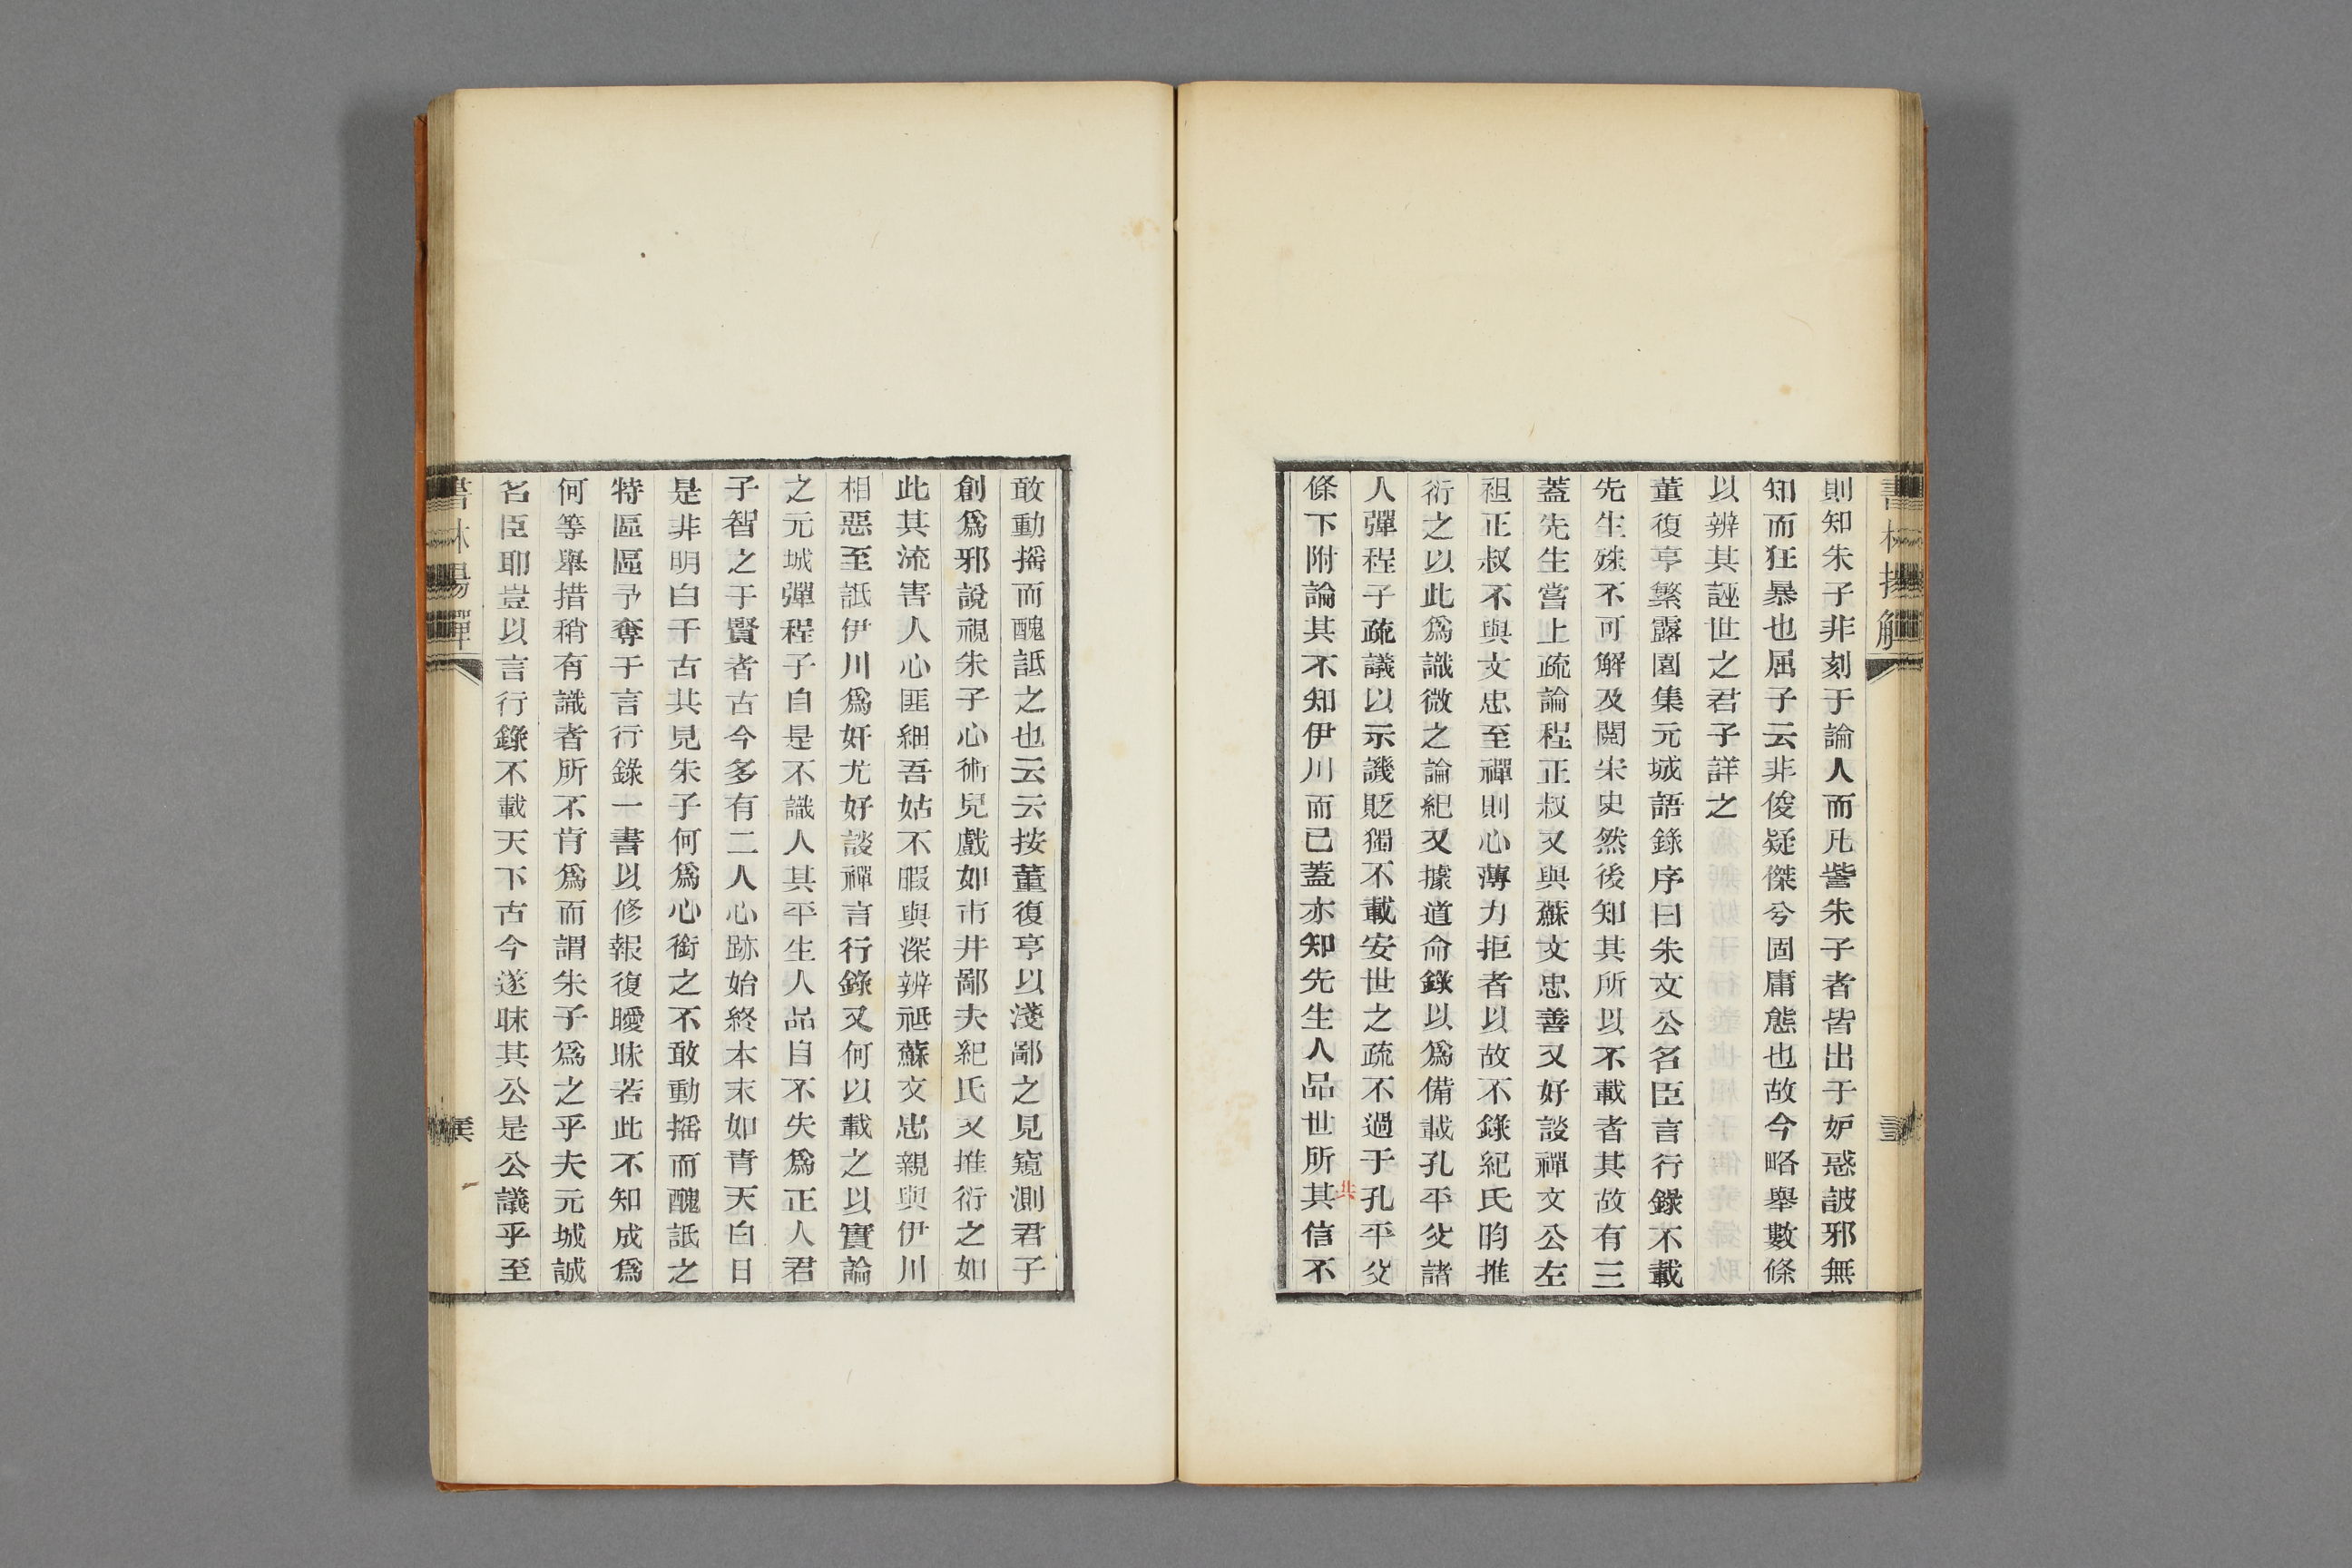 則知朱子非刻于論人而凡訾朱子者皆出于妒惑詖邪無
知而狂暴也屈子云非俊疑傑兮固庸態也故今略舉數條
以辨其誣世之君子詳之
董復亨繁露園集元城語錄序曰朱文公名臣言行錄不載
先生殊不可解及閱宋史然後知其所以不載者其故有三
蓋先生嘗上疏論程正叔又與蘇文忠善又好談禪文公左
袒正叔不與文忠至禪則心薄力拒者以故不錄紀氏昀推
衍之以此為識微之論紀又據道命錄以為備載孔平仲諸
人彈程子疏議以示譏貶獨不載安世之疏不過于孔平仲
條下附論其不知伊川而已蓋亦知先生人品世所共信不
敢動搖而醜詆之也云云按董復亨以淺鄙之見窺測君子
創為邪說視朱子心術兒戲如市井鄙夫紀氏又推衍之如
此其流害人心匪細吾姑不暇與深辨祗蘇文忠親與伊川
相惡至詆伊川為奸尤好談禪言行錄又何以載之以實論
之元城彈程子自是不識人其平生人品自不失為正人君
子智之于賢者古今多有二人心跡始終本末如青天白日
是非明白千古共見朱子何為心銜之不敢動搖而醜詆之
特區區予奪于言行錄一書以修報復曖昧若此不知成為
何等舉措稍有識者所不肯為而謂朱子為之乎夫元城誠
名臣耶豈以言行錄不載天下古今遂昧其公是公議乎至